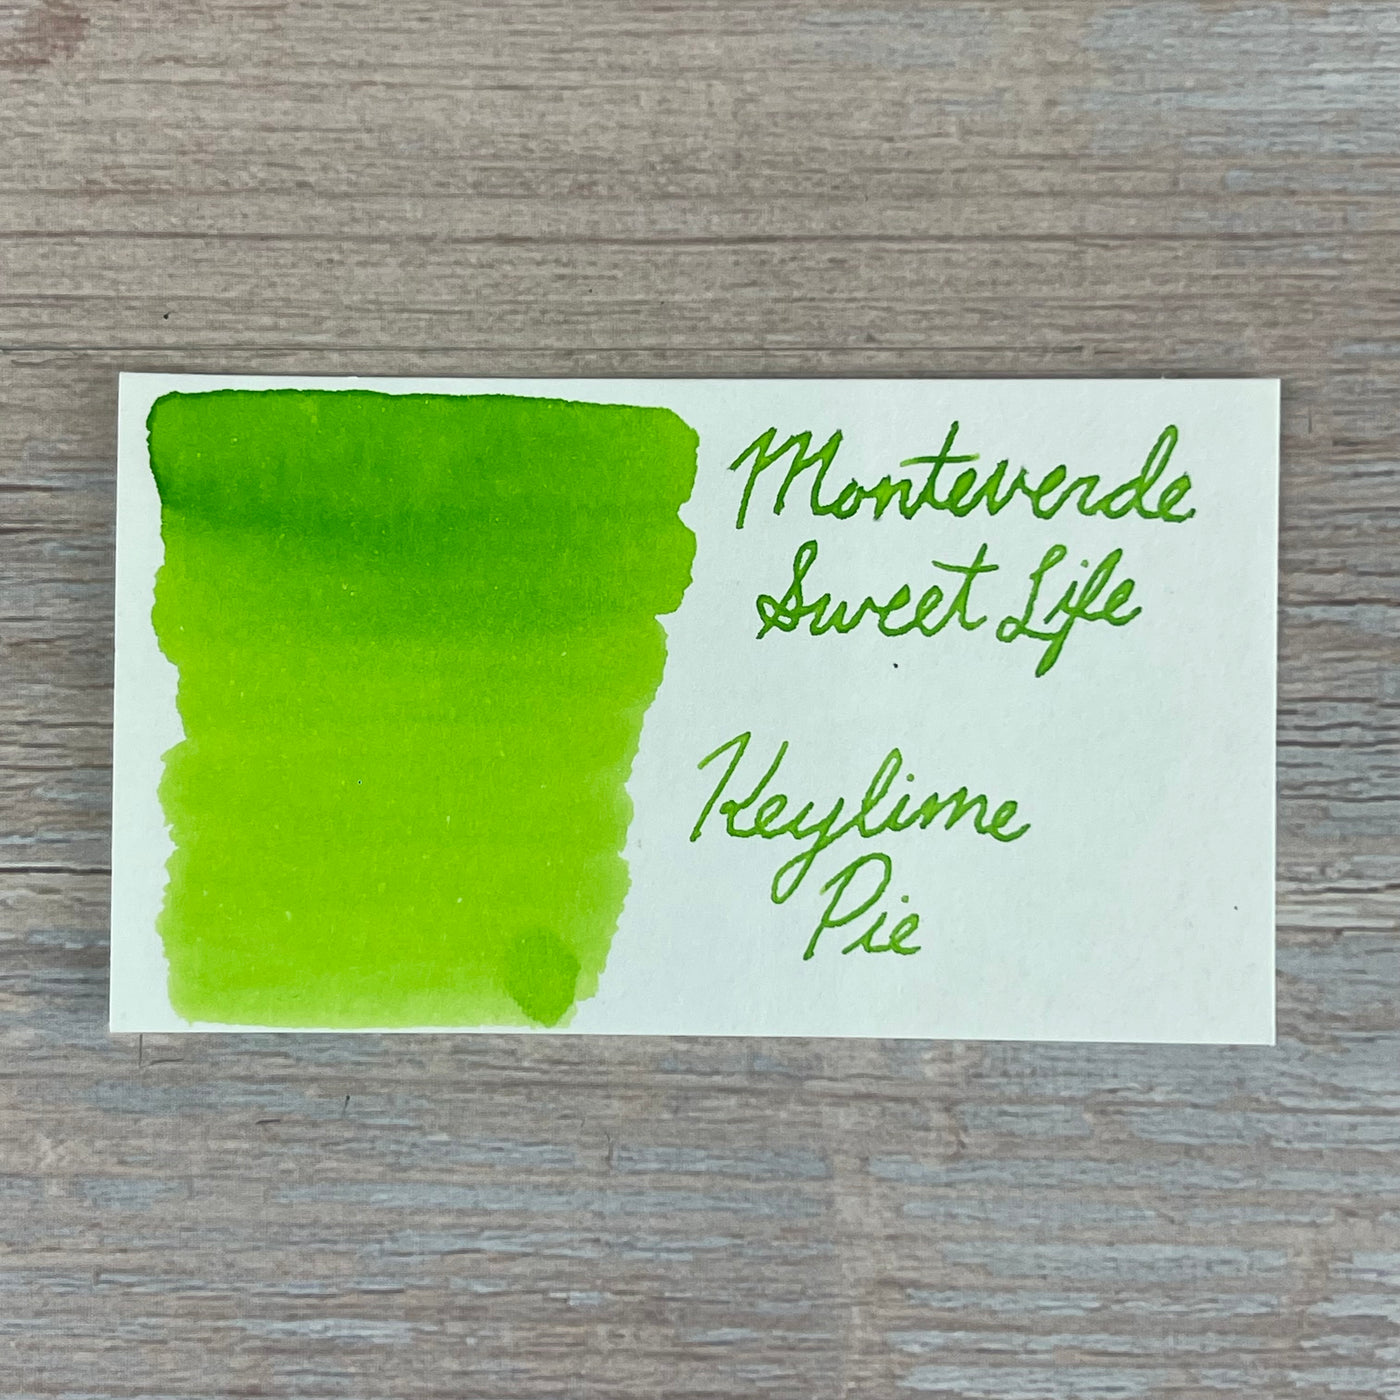 Monteverde
Sweet Life
Keylime
Pie